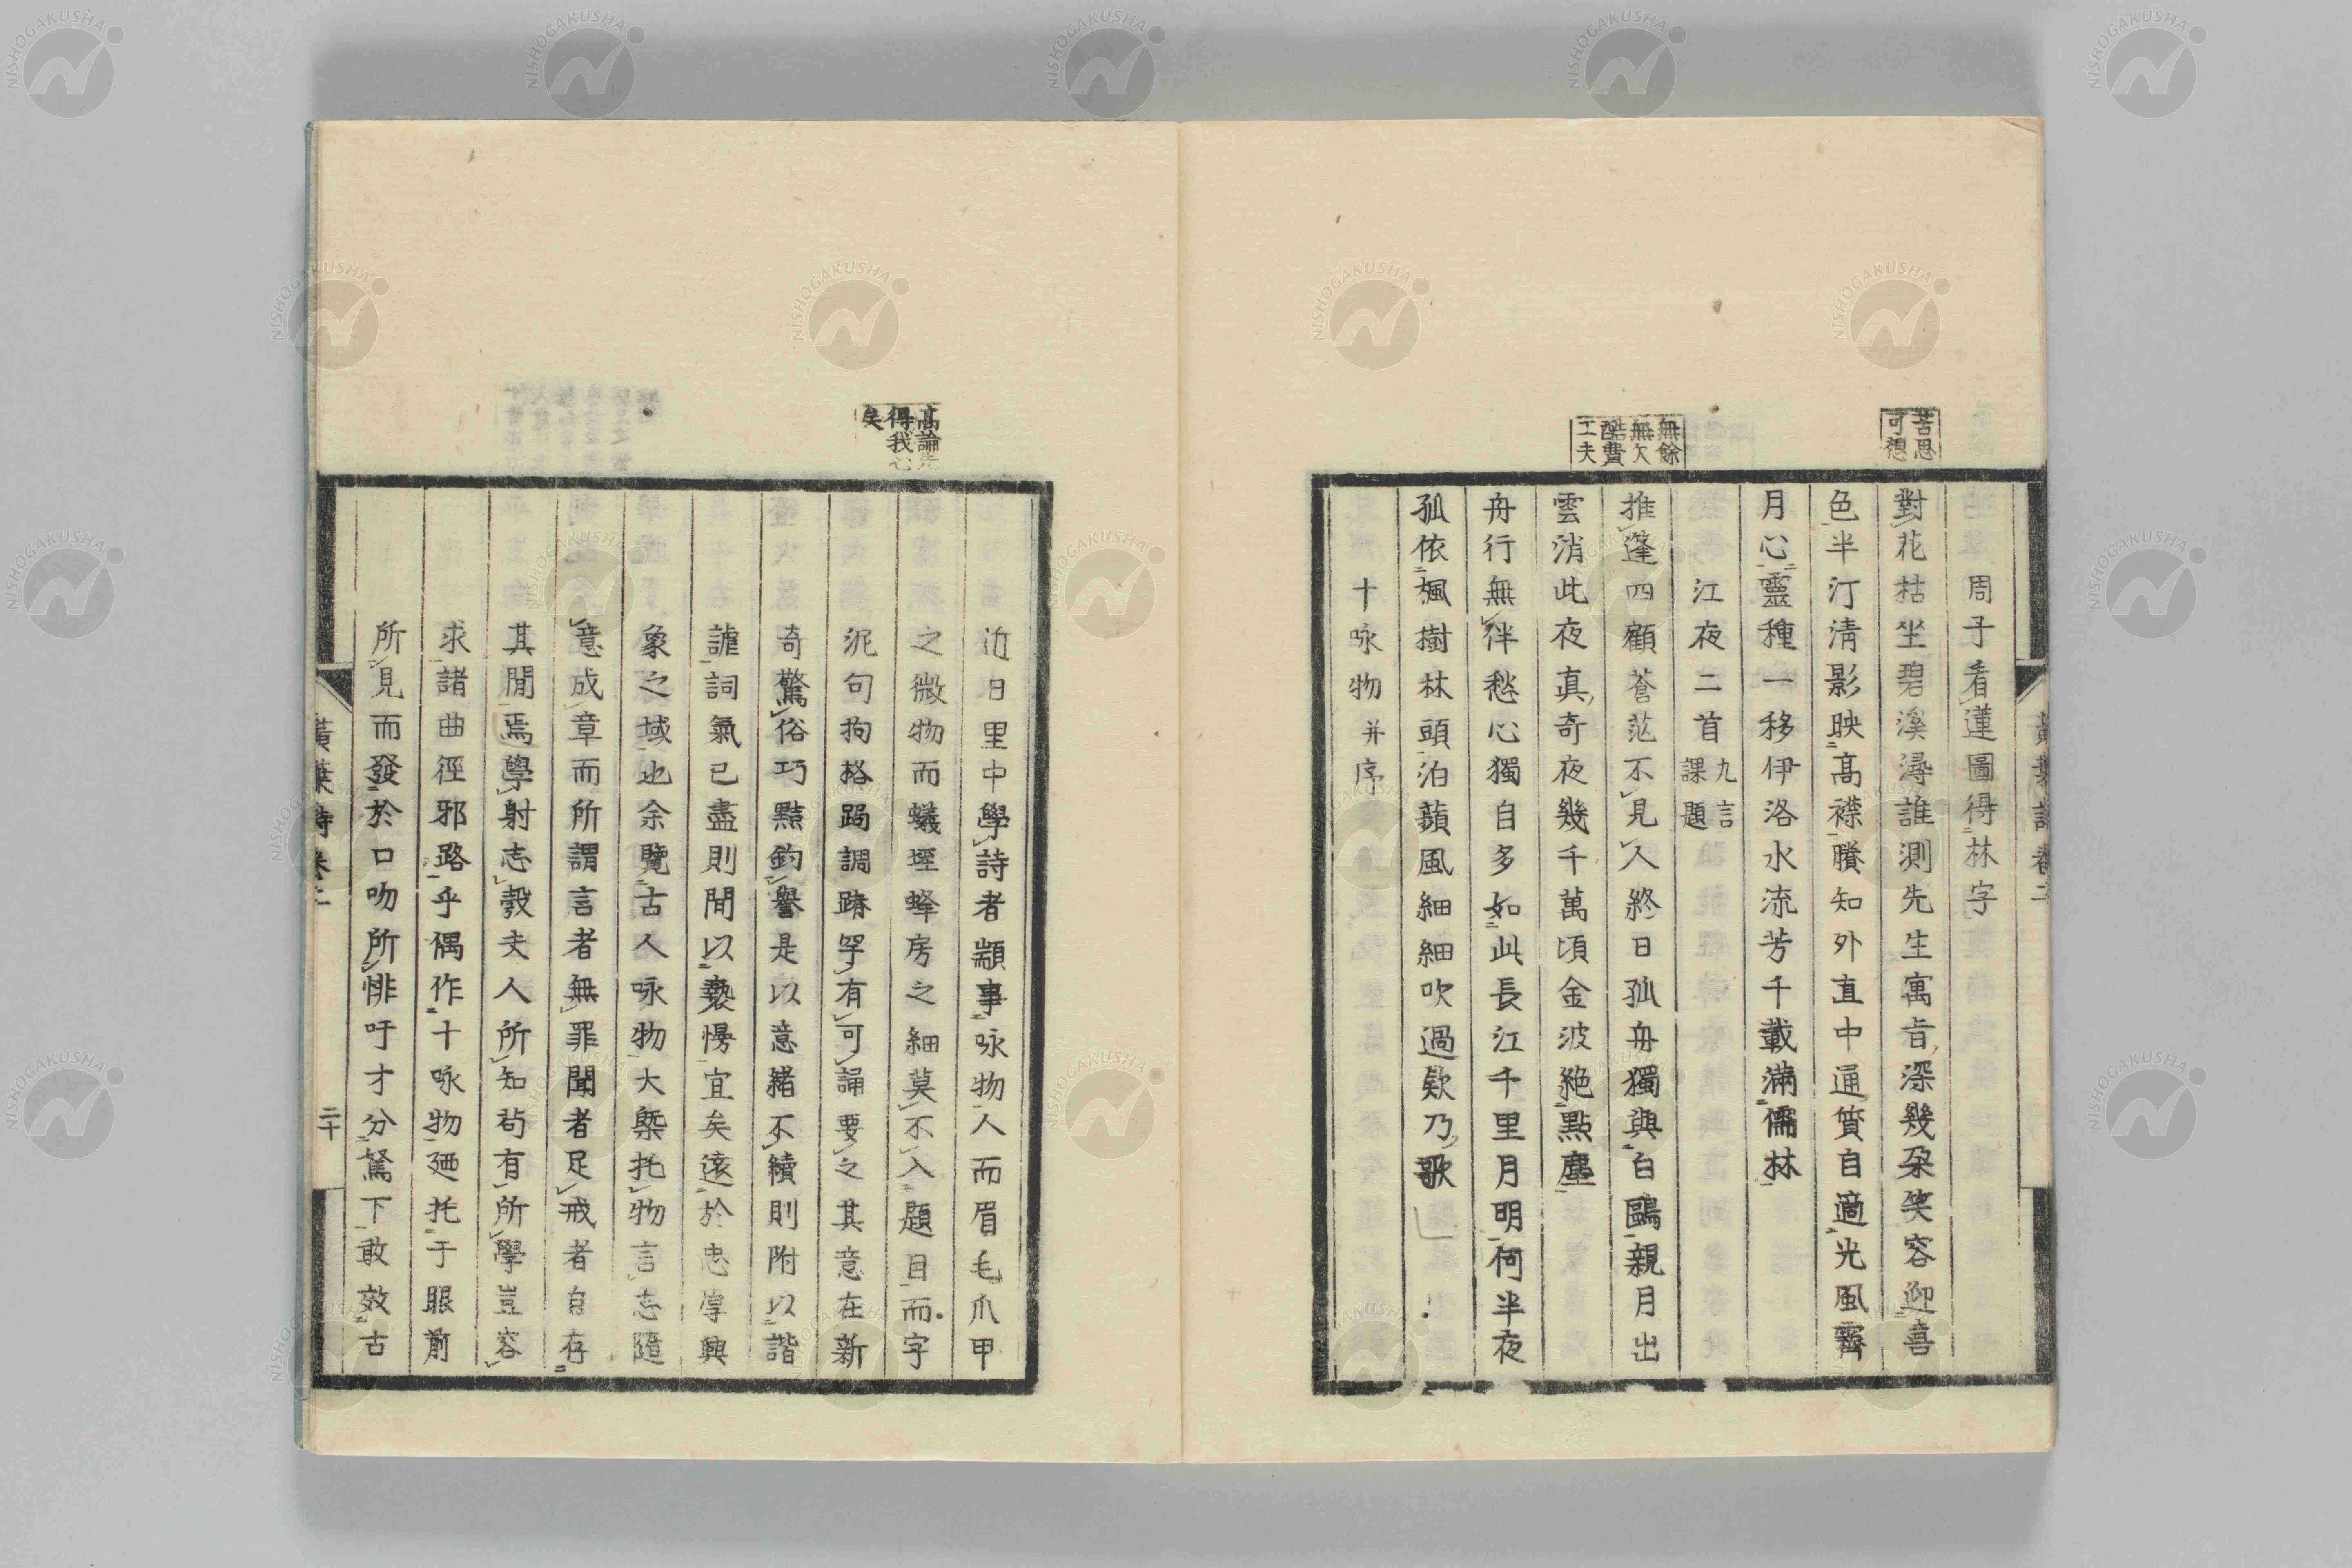 苦思
可想
無餘
無欠
酷費
工夫
周子看蓮圖得林字
對花枯坐碧溪潯誰測先生寓旨深幾朶笑容迎喜
色半汀清影映高襟賸知外直中通質自適光風霽
月心靈種一移伊洛水流芳千載滿儒林
江夜二首九言課題
推篷四顧蒼茫不見人終日孤舟獨與白鷗親月出
雲消此夜真奇夜幾千萬頃金波絶點塵
舟行無伴愁心獨自多如此長江千里月明何半夜
孤依楓樹林頭泊蘋風細細吹過欸乃歌
十咏物并序
高論先
得我心
矣
近日里中學詩者顓事咏物人而眉毛爪甲
之微物而蟻垤蜂房之細莫不入題目而字
泥句拘格跼調蹐罕有可誦要之其意在新
奇驚俗巧點鈞譽是以意緒不續則附以諧
謔詞氣已盡則間以褻慢宜矣遠於忠厚興
象之域也余覽古人咏物大槩托物言志隨
意成章而所謂言者無罪聞者足戒者自存
其間焉學射志彀夫人所知苟有所學豈容
求諸曲徑邪路乎偶作十咏物廼托于眼前
所見而發於口吻所悱吁才分駑下敢效古
黃葉詩卷二
二十
NISHOGAKUSHA